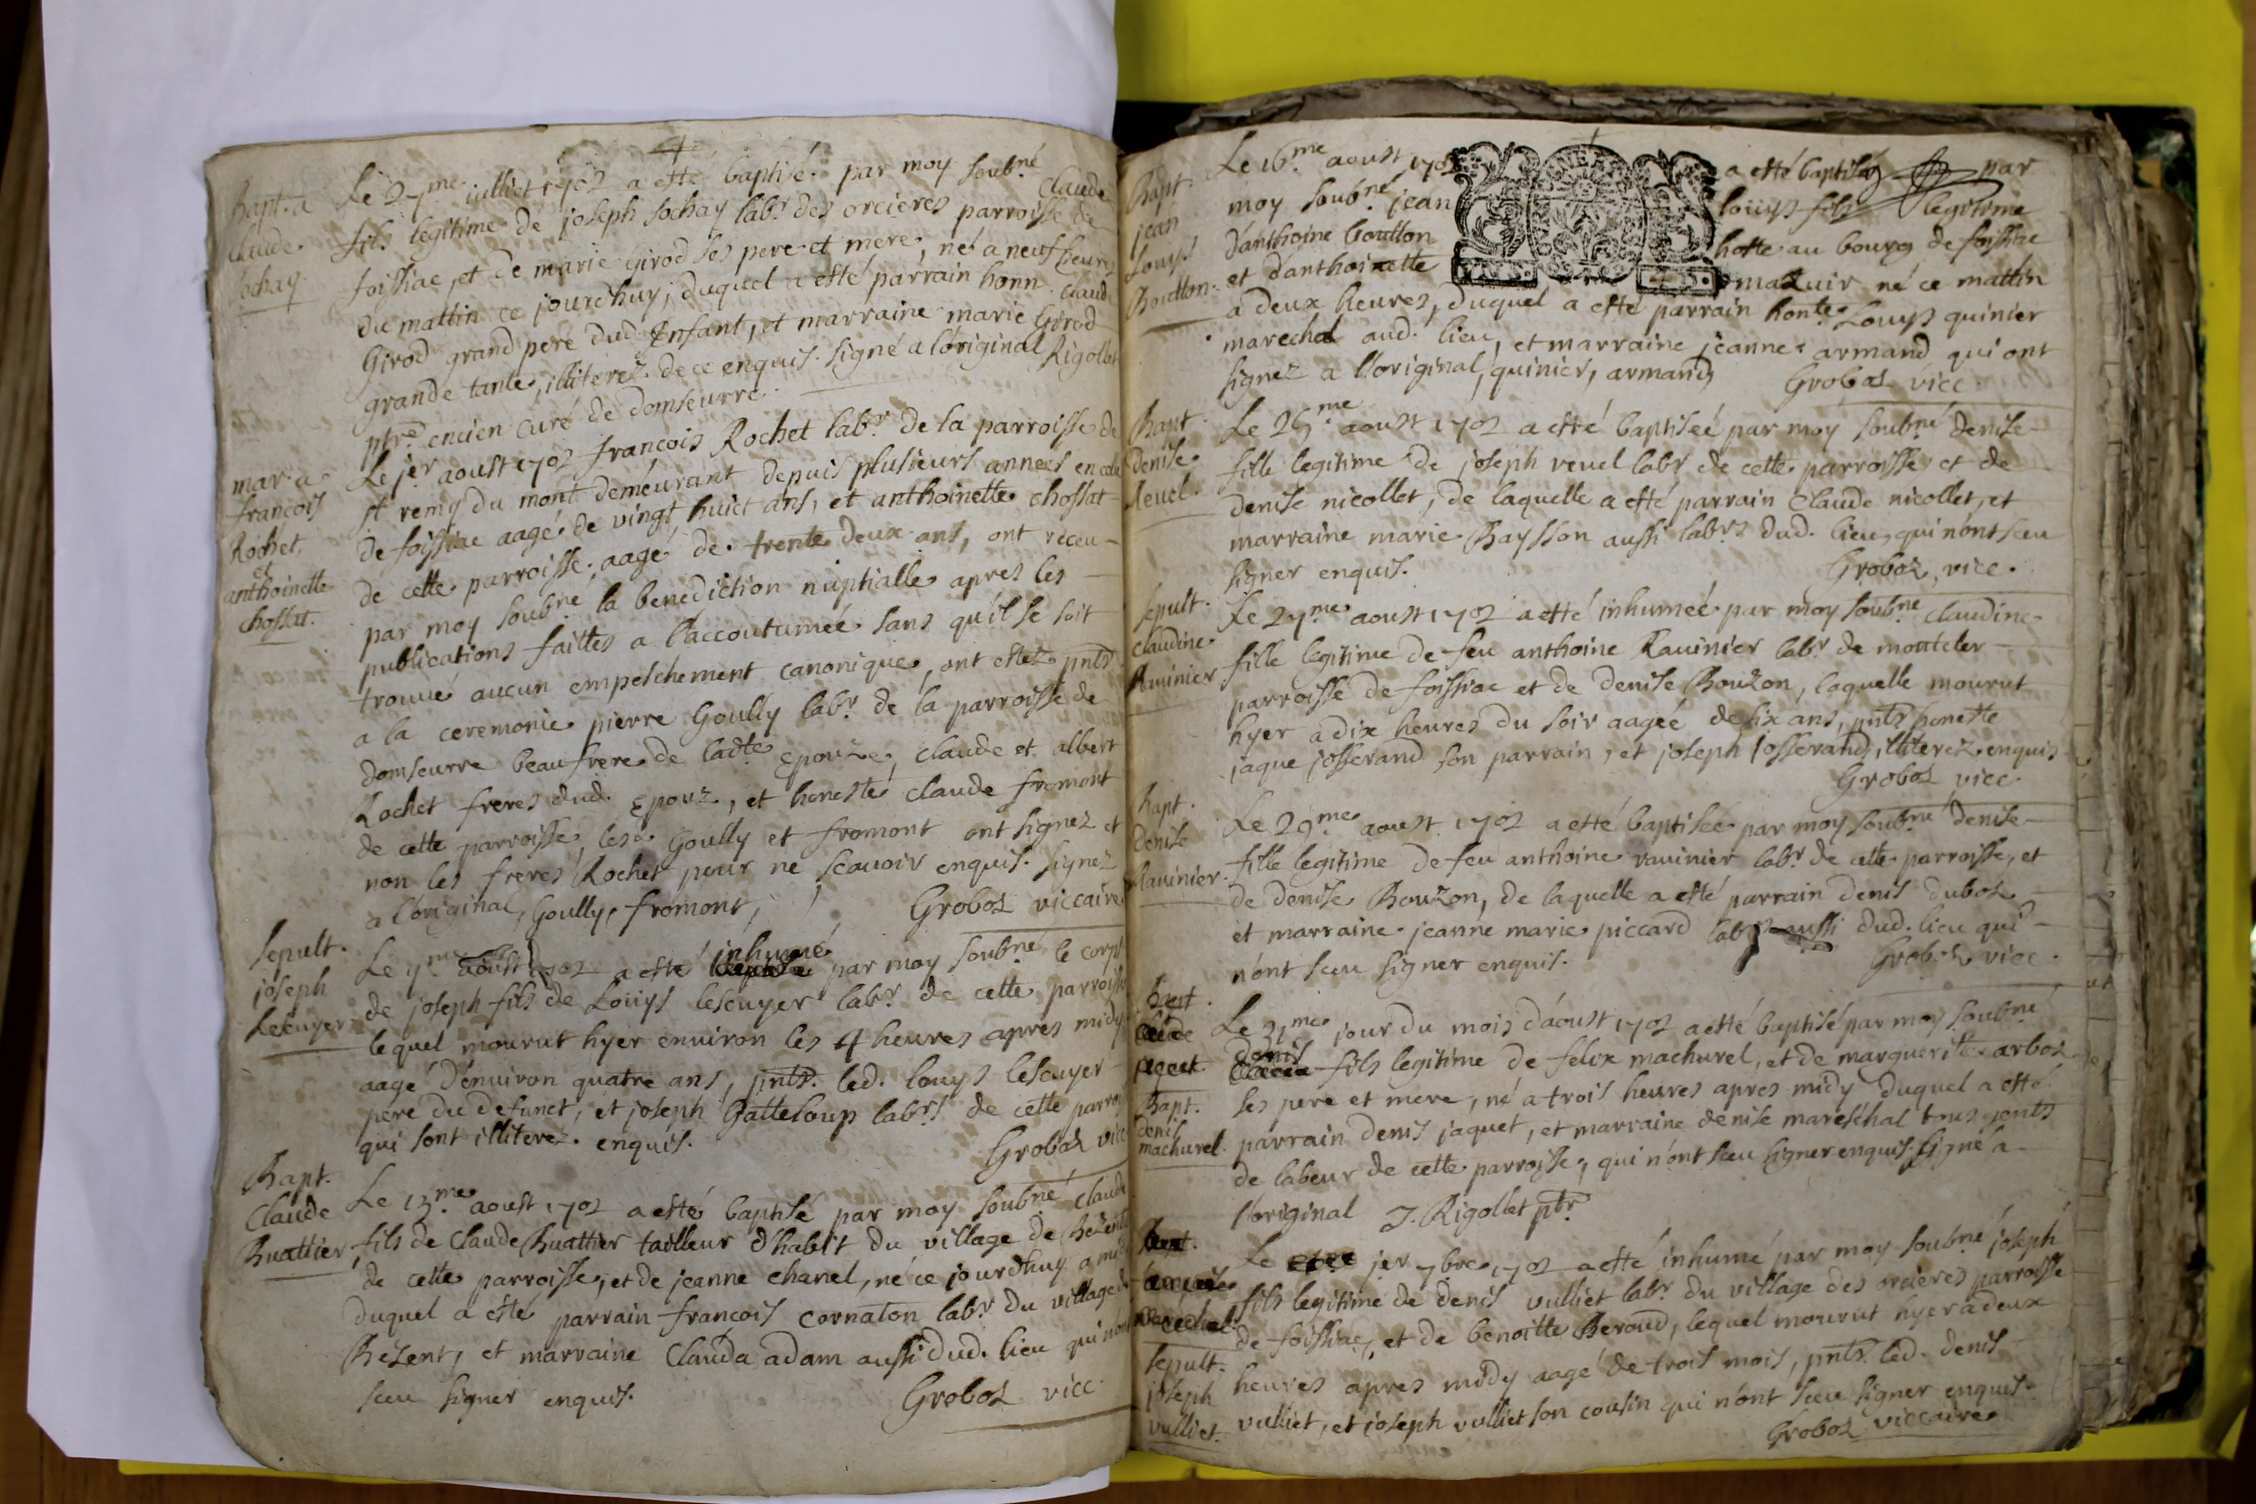 Bapt. a
Claude
sochay
Le 27.me julliet 1702 a esté baptisé par moy soub.né Claude
fils legitime de joseph sochay lab.r des orcieres parroisse de
foissiac, et de marie Girod ses pere et mere, né a neuf heures
du mattin ce jourd'huy, duquel a esté parrain honn. Claude
Girod grand pere dud. Enfant, et marraine marie Girod
grande tante, illiterez de ce enquis. signé a l'original Rigollet
ptre. encien curé de domseurre.
mar. a
francois
Rochet
et
anthoinette
chossat.
Le jer aoust 1702 francois Rochet lab.r de la parroisse de
st remy du mont demeurant depuis plusieurs annees en celle
de foissiac aagé de vingt huict ans, et anthoinette chossat
de cette parroisse, aagé de trente deux ans, ont receu
par moy soub.né la benediction nuptialle apres les
publications faittes a l'accoutumeé sans qu'il se soit
trouué aucun empeschement canonique, ont estez pnts
a la ceremonie pierre Goully lab.r de la parroisse de
domseurre beaufrere de ladte Epouze, Claude et albert
Rochet freres dud. Epoux, et honesté Claude fromont
de cette parroisse, lesd. Goully et fromont ont signez et
non les freres Rochet pour ne scauoir enquis. signez
a l'original, Goully, fromont, Groboz viccaire
sepult.
joseph
Lescuyer
Le 7.me aoust 1702 a esté inhumé par moy soub.né le corps
de joseph fils de Loüys lescuyer lab.r de cette parroisse
lequel mourut hyer environ les 4 heures apres midy
aagé d'enuiron quatre ans, pnts. led. louys lescuyer
pere du defunct, et joseph Gatteloup lab.rs de cette parroi
qui sont illiterez. enquis. Groboz vicc
Bapt.
Claude
Buattier
Le 13.me aoust 1702 a esté baptisé par moy soub.né Claude
fils de Claude Buattier tailleur d'habit du village de Bezent
de cette parroisse, et de jeanne chanel, né ce jourdhuy a midy
duquel a esté parrain francois cornaton lab.r du village de
Bezent, et marraine Clauda adam aussi dud. lieu qui n'ont
sceu signer enquis. Groboz vicc
Bapt.
jean
Louys
Boutton.
Le 16.me aoust 1702 a esté baptisé par
moy soub.né jean loüys fils legitime
d'anthoine boutton hotte au bourg de foissiac
et d'anthoinette mazuir né ce mattin
a deux heures, duquel a esté parrain honte. Louys quinier
marechal aud. lieu, et marraine jeanne armand qui ont
signez a l'original, quinier, armand Groboz vicc.
Bapt.
denise
Reuel.
Le 26.me aoust 1702 a esté baptiseé par moy soub.né denise
fille legitime de joseph reuel lab.r de cette parroisse et de
denise nicollet, de laquelle a esté parrain Claude nicollet, et
marraine marie Baysson aussi lab.rs dud. lieu, qui n'ont sceu
signer enquis. Groboz, vicc.
sepult.
Claudine
Rauinier
Le 27.me aoust 1702 a esté inhumeé par moy soub.né Claudine
fille legitime de feu anthoine Rauinier lab.r de montceler
parroisse de foissiac et de denise Bouzon, laquelle mourut
hyer a dix heures du soir aageé de six ans, pnts honeste
jaque josserand son parrain, et joseph josserand, illiterez enquis
Groboz vicc.
Bapt.
denise
Rauinier.
Le 29.me aoust 1702 a esté baptiseé par moy soub.né denise
fille legitime de feu anthoine rauinier lab.r de cette parroisse, et
de denise Bouzon, de laquelle a esté parrain denis duboz
et marraine jeanne marie piccard aussi dud. lieu qui
n'ont sceu signer enquis. Groboz vicc.
Bapt.
denis
machurel.
Le 31.me jour du mois d'aoust 1702 a esté baptisé par moy soub.né
denis fils legitime de felix machurel, et de marguerite arboz
ses pere et mere, né a trois heures apres midy duquel a esté
parrain denis jaquet, et marraine denise mareschal tous gents
de labeur de cette parroisse, qui n'ont sceu signer enquis. signé a
l'original J. Rigollet ptr.
sepult.
joseph
vulliet.
Le jer 7bre 1702 a esté inhumé par moy soub.né joseph
fils legitime de denis vulliet lab.r du village des orcieres parroisse
de foissiac, et de benoitte Beroud, lequel mourut hyer a deux
heures apres midy aagé de trois mois, pnts. led. denis
vulliet, et joseph vulliet son cousin qui n'ont sceu signer enquis.
Groboz viccaire